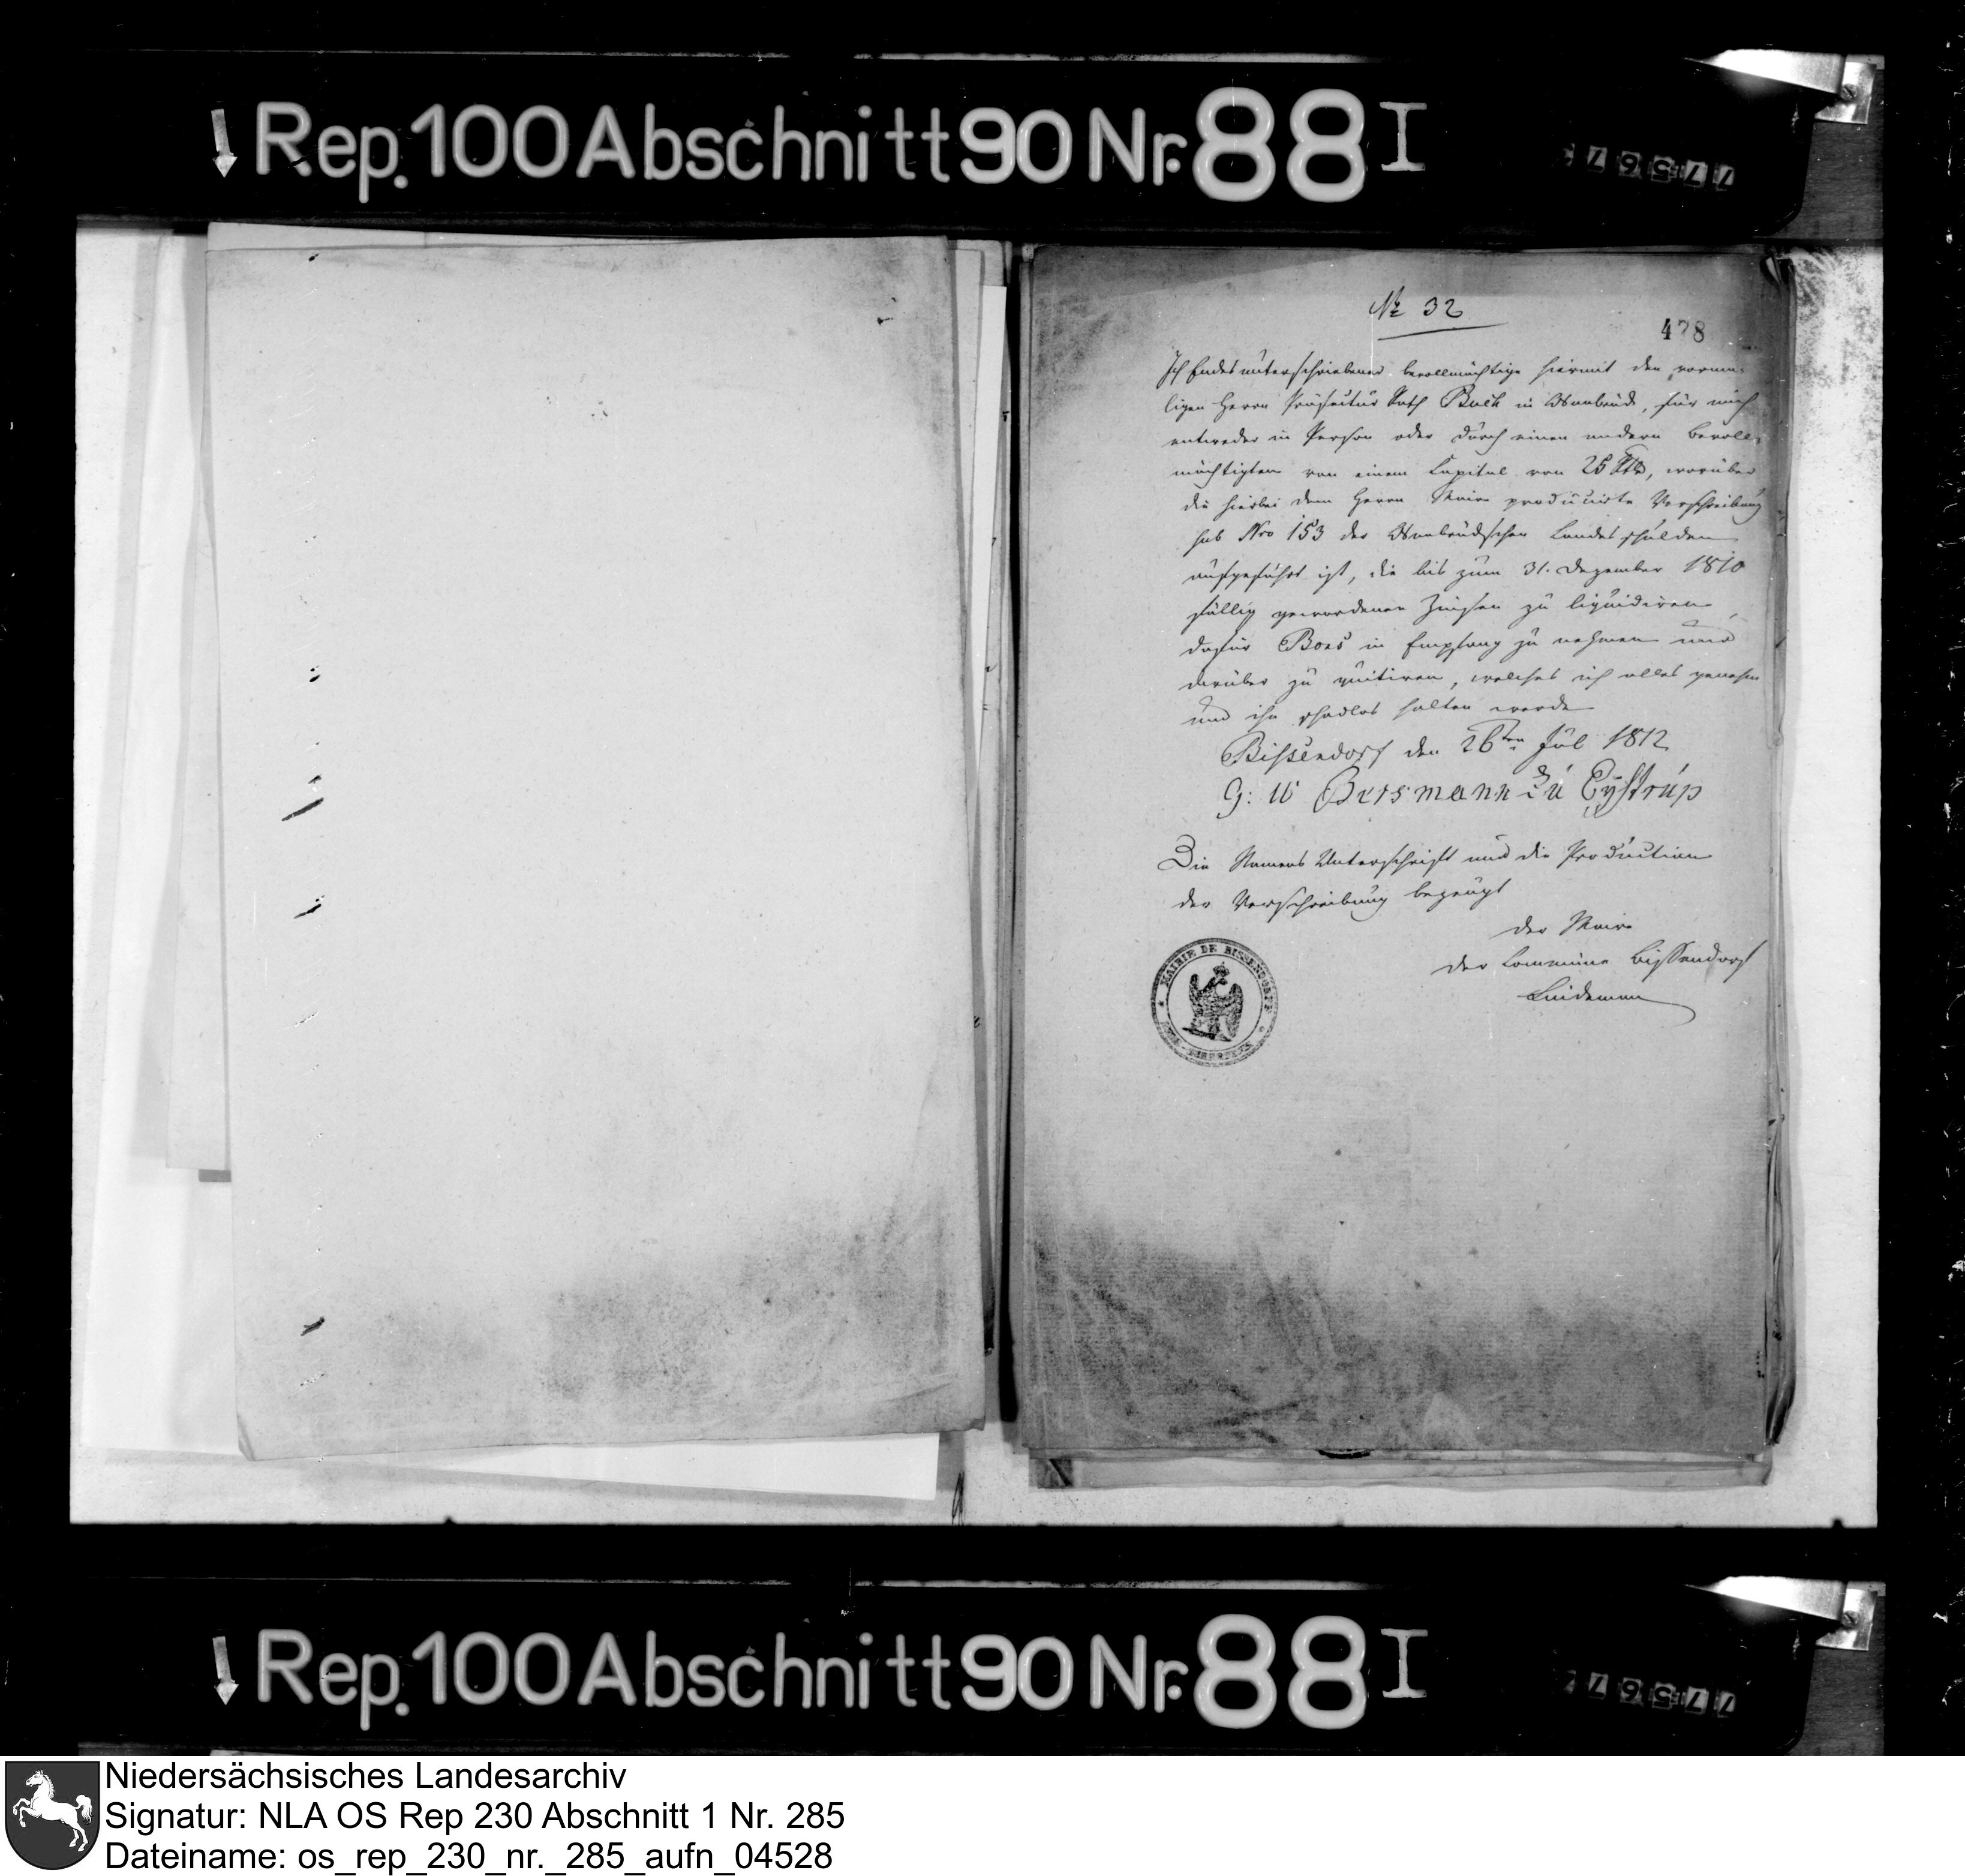 Rep. 100 Abschnitt 90 Nr. 88 I
77567
No 32
478
Ich Endesunterschriebener bevollmächtige hiermit den vorma-
ligen Herrn Präfectur Rath Buch in Osnabrück, für mich
entweder in Person oder durch einen andern Bevoll-
mächtigten von einem Capital von 25 Rtlr, worüber
die hierbei dem Herrn Maire producirte Verschreibung
sub Nro 153 der Osnabrückschen Landesschulden
aufgeführt ist, die bis zum 31. Dezember 1810
fällig gewordenen Zinsen zu liquidiren,
dafür Bons in Empfang zu nehmen und
darüber zu quitiren, welches ich alles genehm
und ihn schadlos halten werde
Bissendorf den 26ten Jul 1812
G: W zu Eystrup
Die Namens Unterschrift und die Production
der Verschreibung bezeugt
der Maire
der Commune Bissendorf
Lindemann
MAIRIE DE BISSENDORFF
Rep. 100 Abschnitt 90 Nr. 88 I
77567
Niedersächsisches Landesarchiv
Signatur: NLA OS Rep 230 Abschnitt 1 Nr. 285
Dateiname: os_rep_230_nr._285_aufn_04528